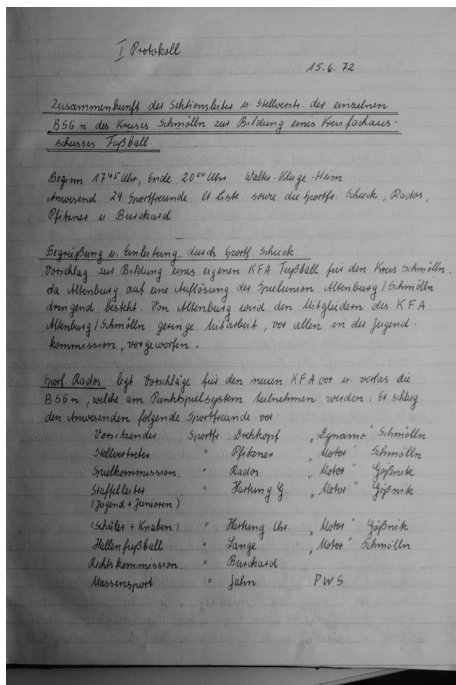 I Protokoll
15.6.72
Zusammenkunft der Sektionsleiter u. Stellvertr. der einzelnen
BSG'n des Kreises Schmölln zur Bildung eines Kreisfachaus-
schusses Fußball
Beginn 17⁴⁵ Uhr, Ende 20⁰⁰ Uhr Walter-Kluge-Heim
Anwesend 29 Sportfreunde lt Liste sowie die Sportfr. Schuck, Rados,
Pfitzner u Burckard
Begrüßung u. Einleitung durch Sportf Schuck
Vorschlag zur Bildung eines eigenen KFA Fußball für den Kreis Schmölln,
da Altenburg auf eine Auflösung der Spielunion Altenburg/Schmölln
dringend besteht. Von Altenburg wird den Mitgliedern des KFA
Altenburg/Schmölln geringe Mitarbeit, vor allen in der Jugend-
kommission, vorgeworfen.
Sporf. Rados legt Vorschläge für den neuen KFA vor u. verlas die
BSG'n, welche am Punktspielsystem teilnehmen werden. Er schlug
den Anwesenden folgende Sportfreunde vor:
Vorsitzender Sportfr. Drehkopf „Dynamo" Schmölln
Stellvertreter " Pfitzner „Motor" Schmölln
Spielkommission " Rados „Motor" Gößnitz
Staffelleiter " Hartung G. „Motor" Gößnitz
(Jugend + Junioren)
(Schüler + Knaben) " Hartung Uhr. „Motor" Gößnitz
Hallenfußball " Lange „Motor" Schmölln
Rechtskommission " Burckard
Massensport " Jahn PWS